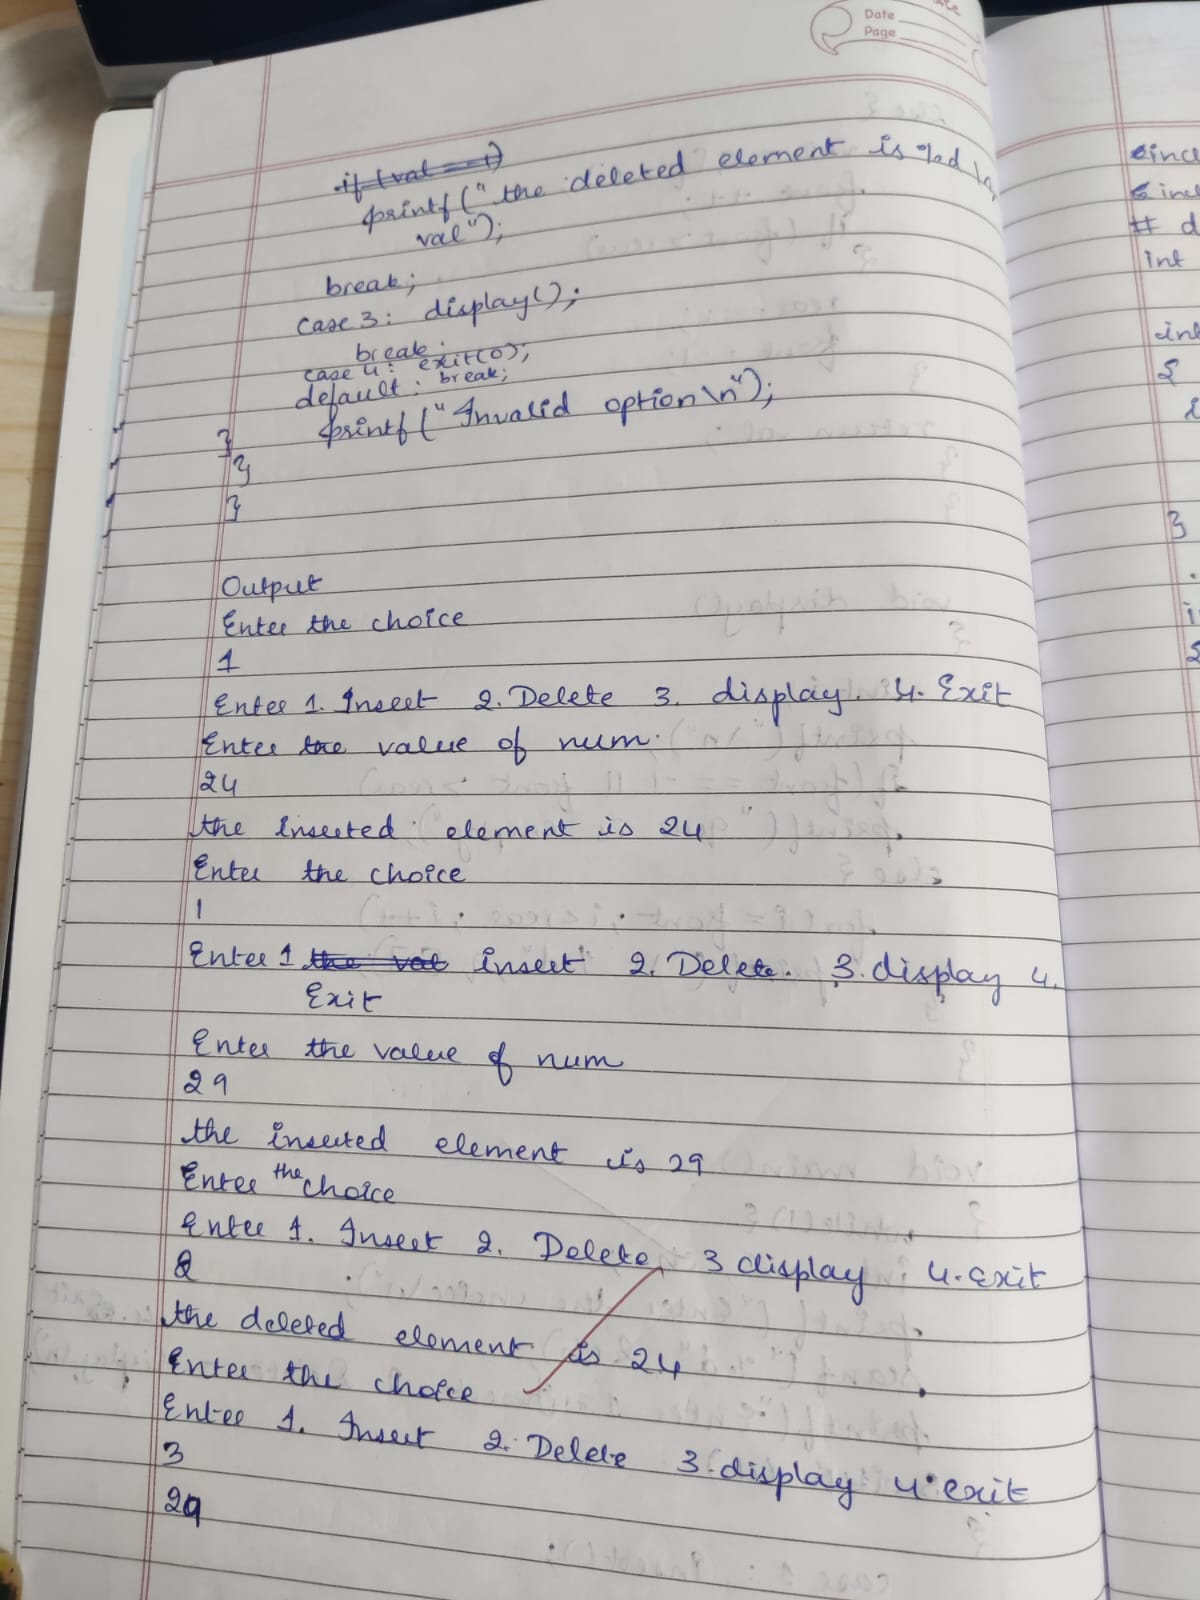 Date
Page
printf ("the deleted element is %d \n,
val");
break;
case 3: display();
break;
case 4: exit(0);
default: break;
printf ("Invalid option \n");
}
}
}
Output
Enter the choice
1
Enter 1. Insert 2. Delete 3. display. 4. Exit
Enter the value of num.
24
the inserted element is 24
Enter the choice
1
Enter 1 the val insert 2. Delete. 3. display 4.
Exit
Enter the value of num
29
the inserted element is 29
Enter the choice
Enter 1. Insert 2. Delete 3 display 4. exit
2
the deleted element is 24
Enter the choice
Enter 1. Insert 2. Delete 3. display 4. exit
3
29
# d
int
int
{
}